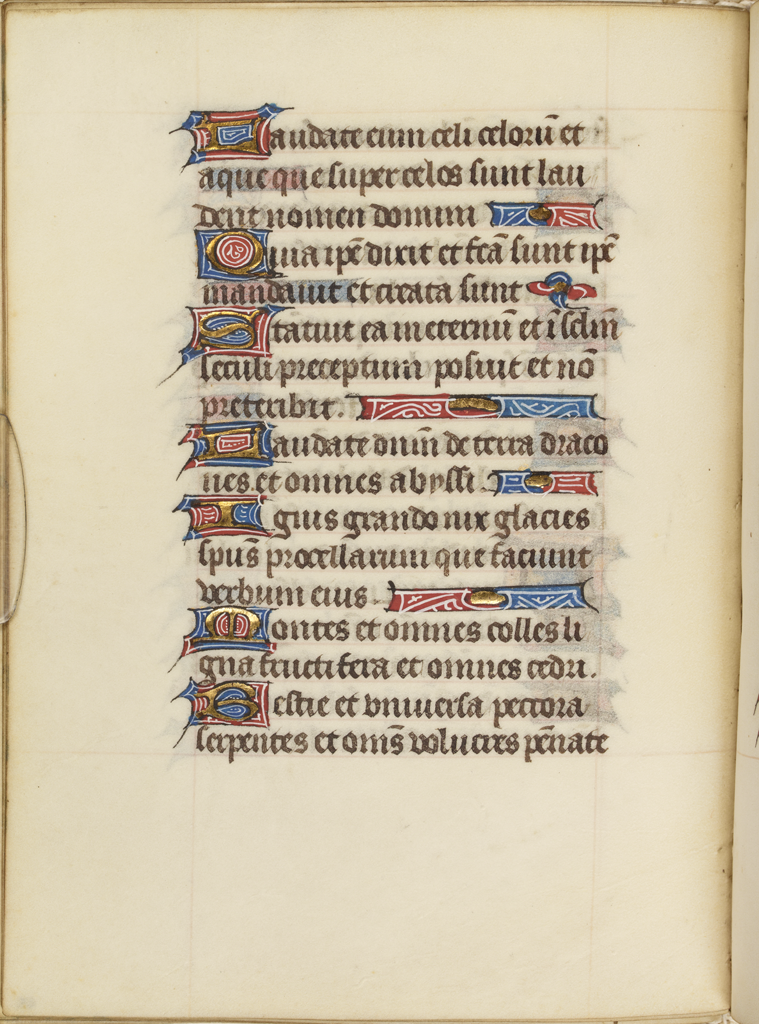 Laudate eum celi celorũ et
aque que super celos sunt lau
dent nomen domini
Quia ip̃e dixit et fc̃a sunt ip̃e
mandavit et creata sunt
Statuit ea in eternũ et ĩ sc̃lm̃
seculi preceptum posuit et nõ
preteribit.
Laudate dnm̃ de terra draco
nes et omnes abyssi.
Ignis grando nix glacies
spũs procellarum que faciunt
verbum eius
Montes et omnes colles li
gna fructifera et omnes cedri.
Bestie et vniuersa peccora
serpentes et om̃s volucres pẽnate